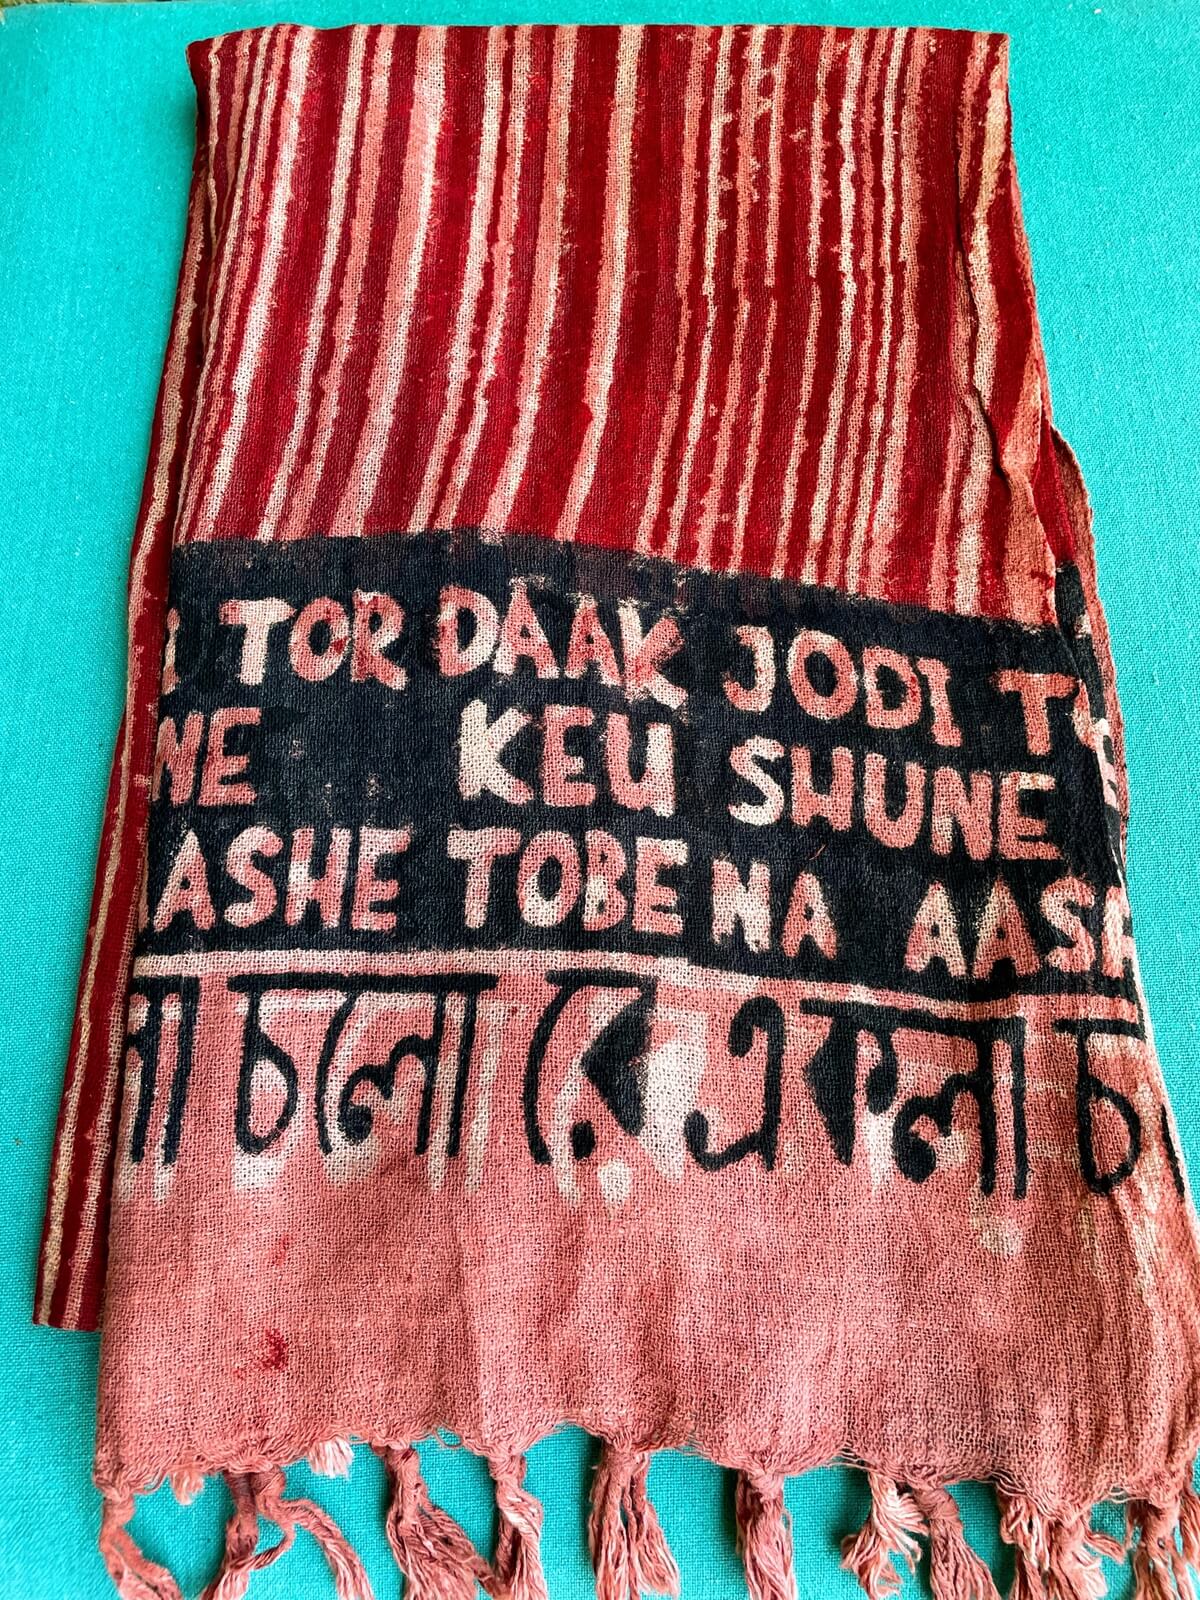 TOR DAAK JODI
NE KEU SHUNE
AASHE TOBE NA AASH
লা চলো রে একলা চ